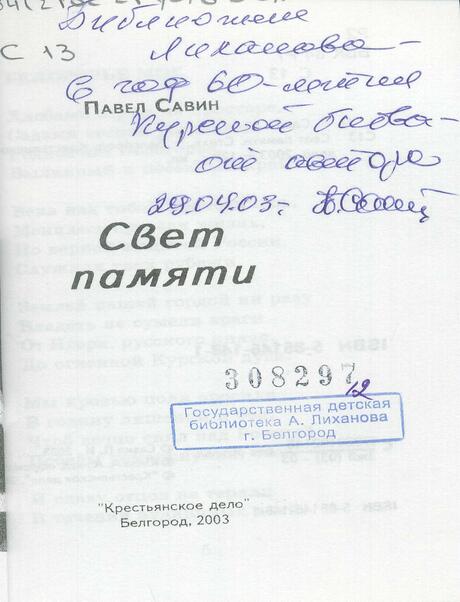 Библиотеке
С 13
Лиханова -
в год 60-летия
ПАВЕЛ САВИН
Курской битвы -
от автора
29.04.03г.
Свет
памяти
308297
12
Государственная детская
библиотека А. Лиханова
г. Белгород
"Крестьянское дело"
Белгород, 2003